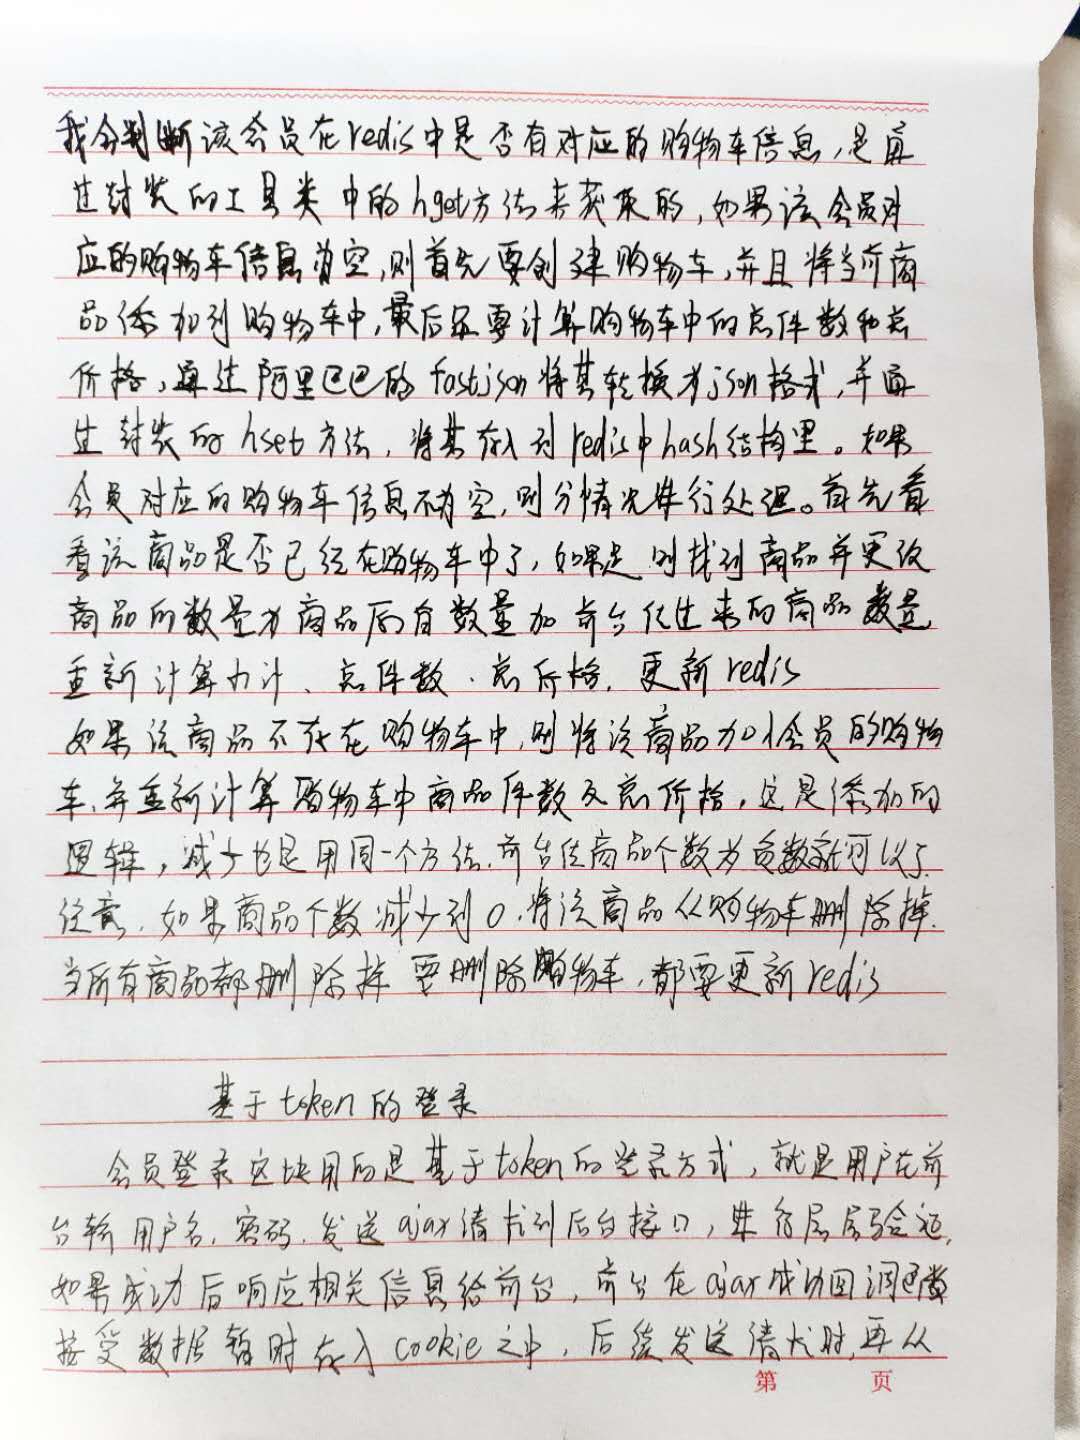 我会判断该会员在redis中是否有对应的购物车信息,是通
过封装的工具类中的hget方法来获取的,如果该会员对
应的购物车信息为空,则首先要创建购物车,并且将当前商
品添加到购物车中,最后还要计算购物车中的总件数和总
价格,通过阿里巴巴的fastjson将其转换为json格式,并通
过封装的hset方法,将其存入到redis中hash结构里。如果
会员对应的购物车信息不为空,则分情况进行处理。首先看
看该商品是否已经在购物车中了,如果是,则找到商品并更改
商品的数量为商品原有数量加前台传过来的商品数量
重新计算小计、总件数、总价格,更新redis
如果该商品不存在购物车中,则将该商品加到会员的购物
车,并重新计算购物车中商品件数及总价格,这是添加的
逻辑,减少也是用同一个方法,前台传商品个数为负数就可以了
注意,如果商品个数减少到0,将该商品从购物车删除掉.
当所有商品都删除掉 要删除购物车,都要更新redis
基于token的登录
会员登录这块用的是基于token的登录方式,就是用户在前
台输用户名,密码,发送ajax请求到后台接口,进行层层验证,
如果成功后响应相关信息给前台,前台在ajax成功回调函数
接受数据暂时存入cookie之中,后续发送请求时,再从
第 页